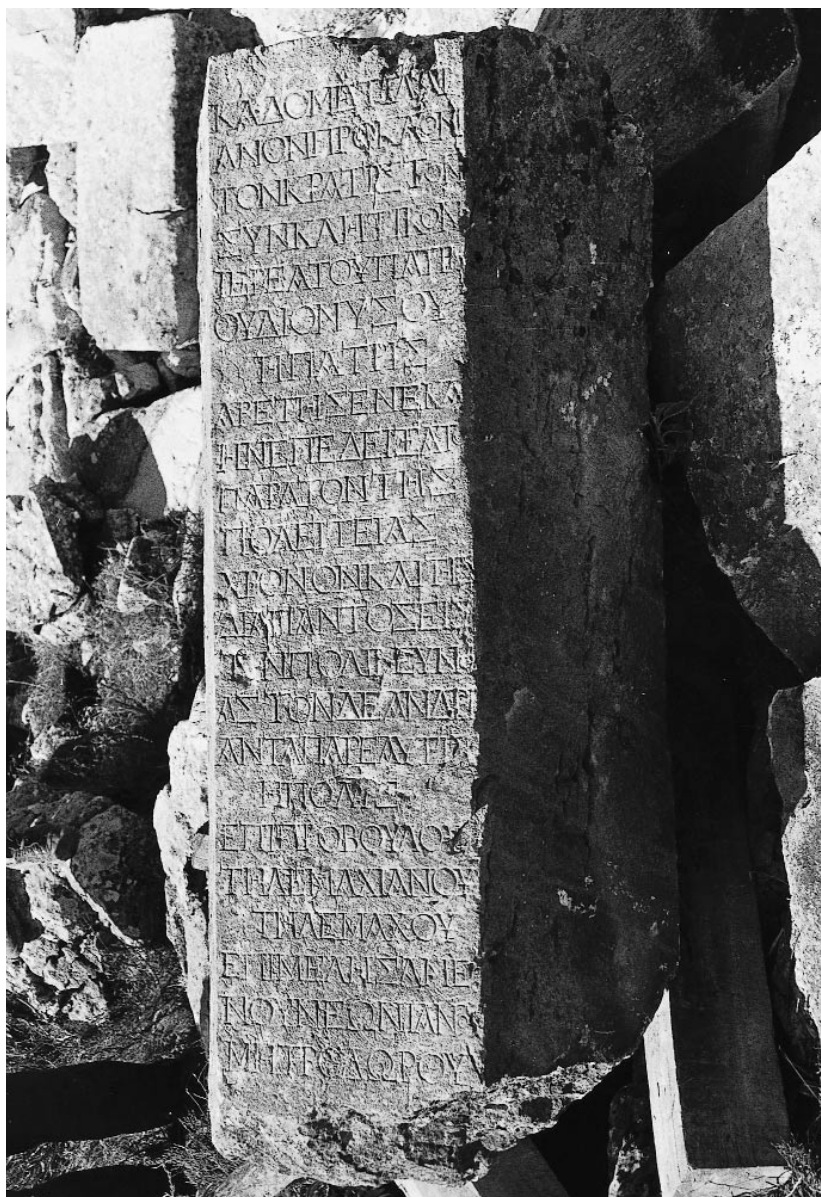 ΚΑΔΟΜΕΤΙΛΛΙ
ΑΝΟΝΠΡΟΚΛΟΝ
ΤΟΝΚΡΑΤΙΣΤΟΝ
ΣΥΝΚΛΗΤΙΚΟΝ
ΙΕΡΕΑΤΟΥΠΑΤΡ
ΟΥΔΙΟΝΥΣΟΥ
ΗΠΑΤΡΙΣ
ΑΡΕΤΗΣΕΝΕΚΑ
ΗΝΕΠΕΔΕΙΞΑΤΟ
ΠΑΡΑΤΟΝΤΗΣ
ΠΟΛΕΙΤΕΙΑΣ
ΧΡΟΝΟΝΚΑΙΤΗΣ
ΔΙΑΠΑΝΤΟΣΕΙΣ
ΤΗΝΠΟΛΙΝΕΥΝΟΙ
ΑΣΤΟΝΔΕΑΝΔΡΙ
ΑΝΤΑΠΑΡΕΑΥΤΗΣ
ΗΠΟΛΙΣ
ΕΠΙΠΡΟΒΟΥΛΟΥ
ΤΗΛΕΜΑΧΙΑΝΟΥ
ΤΗΛΕΜΑΧΟΥ
ΕΠΙΜΕΛΗΣΑΜΕ
ΝΟΥΝΕΩΝΙΑΝΟΥ
ΜΗΤΡΟΔΩΡΟΥ